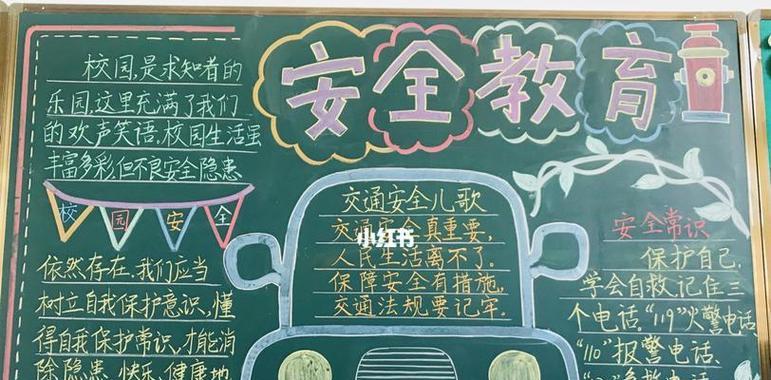 安全教育
校园,是求知者的
乐园,这里充满了我们
的欢声笑语,校园生活虽
丰富多彩,但不良安全隐患
校园安全
依然存在,我们应当
树立自我保护意识,懂
得自我保护常识,才能消
除隐患,快乐、健康地
交通安全儿歌
交通安全真重要,
人民生活离不了.
保障安全有措施,
交通法规要记牢.
小红书
安全常识
保护自己.
学会自救记住三
个电话,"119"火警电话
"110"报警电话、